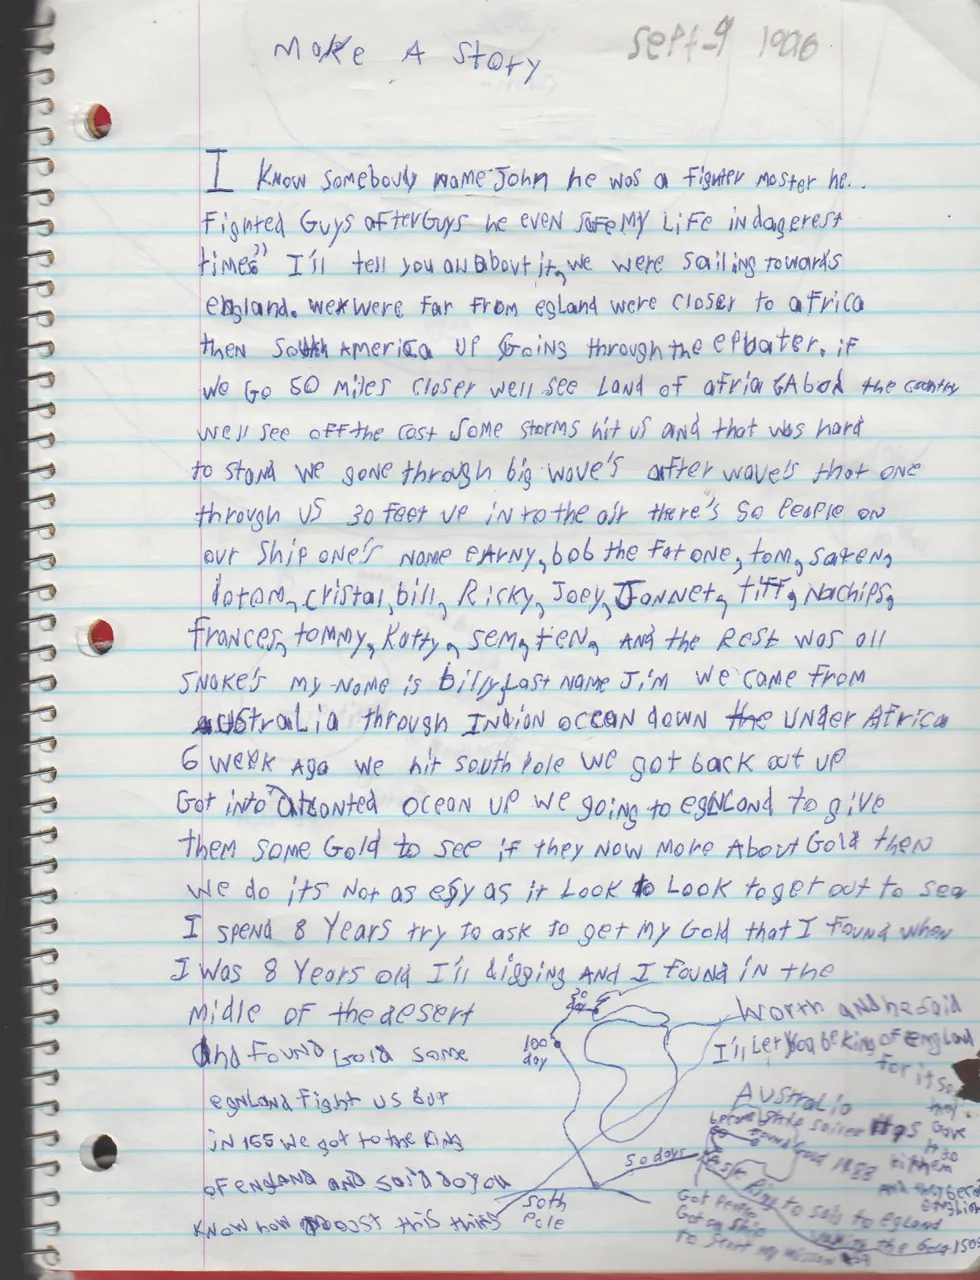 Make A Story
Sept-9 1996
I Know Somebody name John he was a Fighter master he..
Fighted Guys after Guys he even safe My Life in dagerest
times" I'll tell you all about it, we were sailing towards
england. we were far from egland were closer to africa
then South America up Going through the eqbater. if
we Go 50 miles closer well see Land of afria GAbod the country
well see off the cost some storms hit us and that was hard
to stand we gone through big wave's after wave's that one
through us 30 feet up into the air there's 50 people on
our ship one's name eArny, bob the fat one, tom, saren,
dotom, cristal, bill, Ricky, Joey, Jonnet, tiff, Nachips,
frances, tommy, Katty, sem, ten, And the Rest was all
snake's my name is billy, Last name Jim we came from
australia through Indion ocean down the under Africa
6 week Ago we hit south pole we got back out up
Got into atlonted ocean up we going to eglCand to give
them some Gold to see if they now more About Gold then
we do its Not as eesy as it Look to Look to get out to sea
I spend 8 Years try to ask to get my Gold that I found when
I was 8 Years old I'll digging And I found in the
midle of the desert
And found Gold some
egnland fight us but
in 155 we got to the King
of england and said do you
know how boost this thing
worth and he said
I'll Let you be King of england
for it so
they
Gave
30
day
100
day
50 days
soth
pole
Australia
Found Gold 1953
Ask King to sail to egland
Got on ship
to start my mission